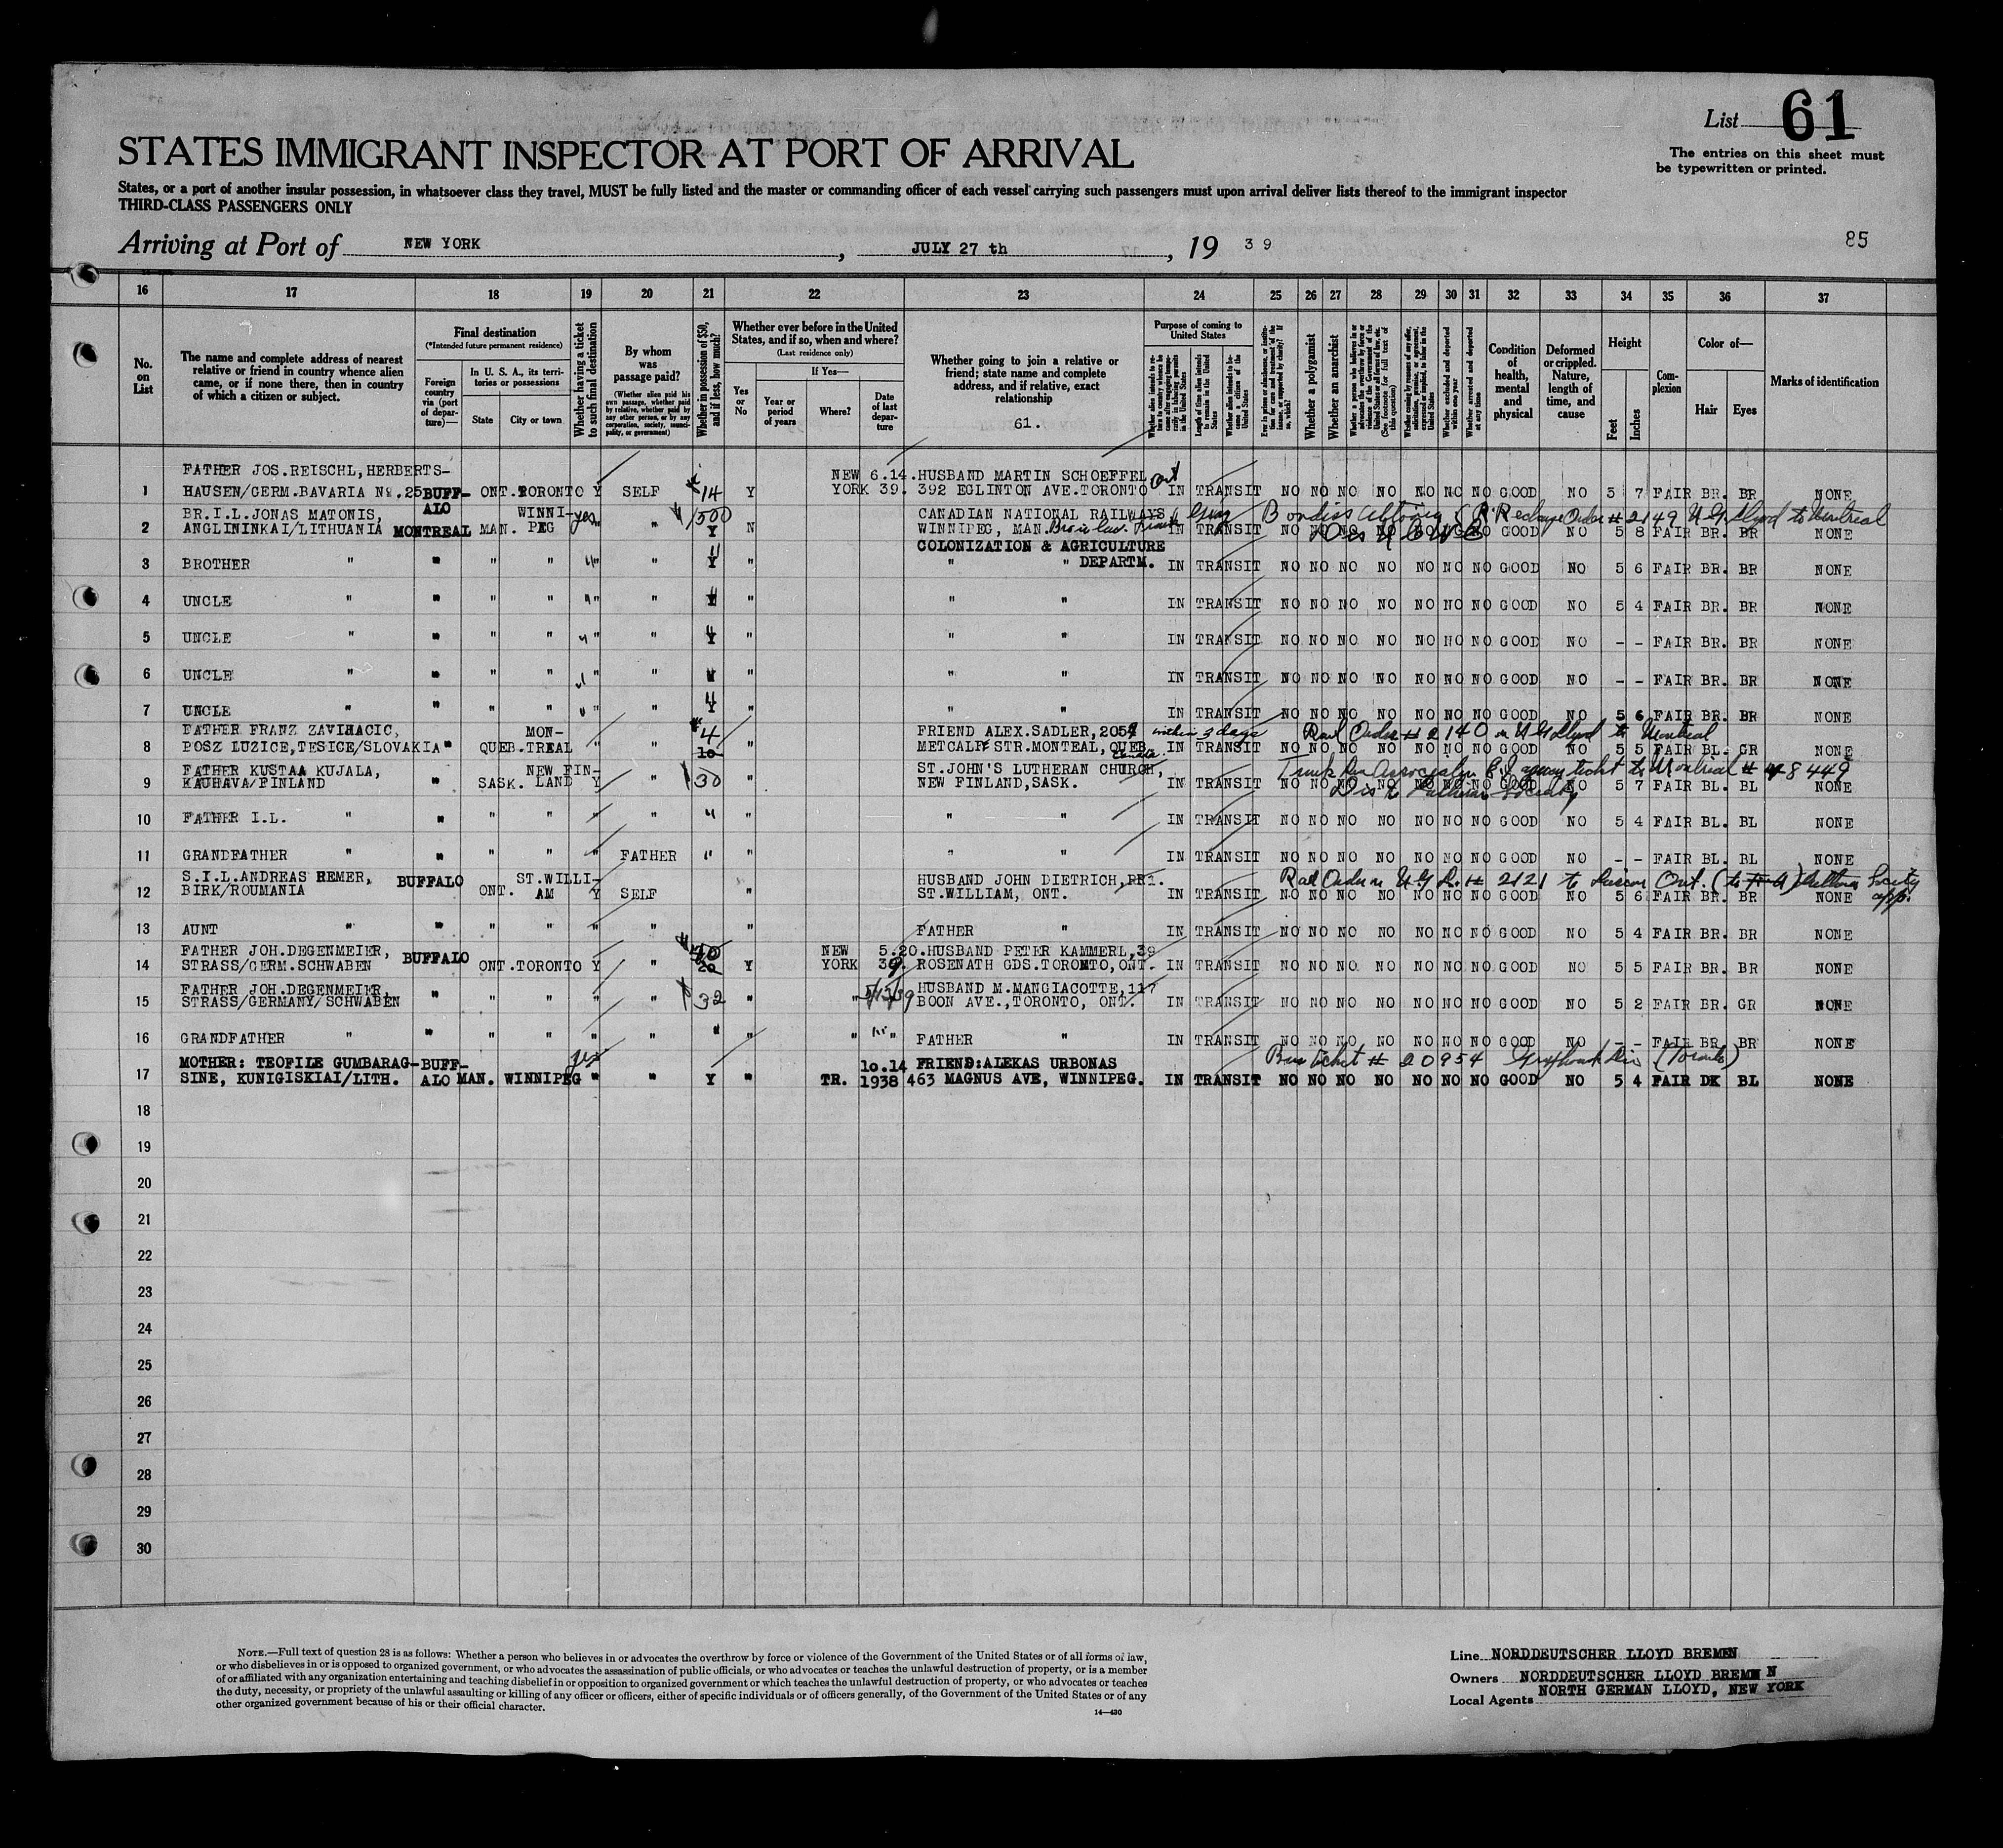 List 61
The entries on this sheet must
be typewritten or printed.
STATES IMMIGRANT INSPECTOR AT PORT OF ARRIVAL
States, or a port of another insular possession, in whatsoever class they travel, MUST be fully listed and the master or commanding officer of each vessel carrying such passengers must upon arrival deliver lists thereof to the immigrant inspector
THIRD-CLASS PASSENGERS ONLY
85
Arriving at Port of NEW YORK, JULY 27 th, 19 39
16 17 18 19 20 21 22 23 24 25 26 27 28 29 30 31 32 33 34 35 36 37
No. on List
The name and complete address of nearest relative or friend in country whence alien came, or if none there, then in country of which a citizen or subject.
Final destination
(*Intended future permanent residence)
Foreign country via (port of departure)—
In U. S. A., its territories or possessions
State City or town
Whether having a ticket to such final destination
By whom was passage paid?
(Whether alien paid his own passage, whether paid by relative, whether paid by any other person, or by any corporation, society, municipality, or government)
Whether in possession of $50, and if less, how much?
Whether ever before in the United States, and if so, when and where?
(Last residence only)
Yes or No
If Yes—
Year or period of years
Where?
Date of last departure
Whether going to join a relative or friend; state name and complete address, and if relative, exact relationship
61.
Purpose of coming to United States
Length of time alien intends to remain in the United States
Whether alien intends to become a citizen of the United States
Whether a polygamist
Whether an anarchist
Whether excluded and deported within one year
Whether arrested and deported at any time
Condition of health, mental and physical
Deformed or crippled. Nature, length of time, and cause
Height
Feet Inches
Complexion
Color of—
Hair Eyes
Marks of identification
FATHER JOS.REISCHL,HERBERTS- NEW 6.14. HUSBAND MARTIN SCHOEFFEL
1 HAUSEN/GERM.BAVARIA No.25 BUFF- ONT. TORONTO Y SELF 14 Y YORK 39. 392 EGLINTON AVE.TORONTO IN TRANSIT NO NO NO NO NO NO NO GOOD NO 5 7 FAIR BR. BR NONE
ALO
BR.I.L.JONAS MATONIS, WINNI- yes 1500 CANADIAN NATIONAL RAILWAYS
2 ANGLININKAI/LITHUANIA MONTREAL MAN. PEG " " Y N WINNIPEG, MAN. IN TRANSIT NO NO NO NO NO NO NO GOOD NO 5 8 FAIR BR. BR NONE
COLONIZATION & AGRICULTURE
3 BROTHER " " " " " " Y " " " DEPARTM. IN TRANSIT NO NO NO NO NO NO NO GOOD NO 5 6 FAIR BR. BR NONE
4 UNCLE " " " " " " Y " " " IN TRANSIT NO NO NO NO NO NO NO GOOD NO 5 4 FAIR BR. BR NONE
5 UNCLE " " " " " " Y " " " IN TRANSIT NO NO NO NO NO NO NO GOOD NO - - FAIR BR. BR NONE
6 UNCLE " " " " " " Y " " " IN TRANSIT NO NO NO NO NO NO NO GOOD NO - - FAIR BR. BR NONE
7 UNCLE " " " " " " Y " " " IN TRANSIT NO NO NO NO NO NO NO GOOD NO 5 6 FAIR BR. BR NONE
FATHER FRANZ ZAVIHACIC, MON- 4 FRIEND ALEX.SADLER,2054 within 3 days Rail Order # 2140 on N G Lloyd to Montreal
8 POSZ LUZICE,TESICE/SLOVAKIA " QUEB. TREAL " " 10 " METCALFE STR.MONTEAL, QUEB. IN TRANSIT NO NO NO NO NO NO NO GOOD NO 5 5 FAIR BL. GR NONE
Canada
FATHER KUSTAA KUJALA, NEW FIN- ST.JOHN'S LUTHERAN CHURCH, ticket to Montreal # 48449
9 KAUHAVA/FINLAND " SASK. LAND Y " 30 " NEW FINLAND,SASK. IN TRANSIT NO NO NO NO NO NO NO GOOD NO 5 7 FAIR BL. BL NONE
10 FATHER I.L. " " " " " " " " " " IN TRANSIT NO NO NO NO NO NO NO GOOD NO 5 4 FAIR BL. BL NONE
11 GRANDFATHER " " " " " FATHER " " " " IN TRANSIT NO NO NO NO NO NO NO GOOD NO - - FAIR BL. BL NONE
S.I.L.ANDREAS REMER, BUFFALO ST.WILLI- HUSBAND JOHN DIETRICH,RR1. Rail Order # 2121 to Ont.
12 BIRK/ROUMANIA ONT. AM Y SELF " ST.WILLIAM, ONT. IN TRANSIT NO NO NO NO NO NO NO GOOD NO 5 6 FAIR BR. BR NONE
13 AUNT " " " " " " " FATHER " IN TRANSIT NO NO NO NO NO NO NO GOOD NO 5 4 FAIR BR. BR NONE
FATHER JOH.DEGENMEIER, BUFFALO NEW 5.20. HUSBAND PETER KAMMERL,39
14 STRASS/GERM.SCHWABEN ONT. TORONTO Y " 20 Y YORK 39. ROSENATH GDS.TORONTO,ONT. IN TRANSIT NO NO NO NO NO NO NO GOOD NO 5 5 FAIR BR. BR NONE
FATHER JOH.DEGENMEIER, HUSBAND M.MANGIACOTTE,117
15 STRASS/GERMANY/SCHWABEN " " " " " 32 " " 5/13/39 BOON AVE.,TORONTO, ONT. IN TRANSIT NO NO NO NO NO NO NO GOOD NO 5 2 FAIR BR. GR NONE
16 GRANDFATHER " " " " " " " " " " FATHER " IN TRANSIT NO NO NO NO NO NO NO GOOD NO - - FAIR BR. BR NONE
MOTHER: TEOFILE GUMBARAG- BUFF- yes 10.14 FRIEND:ALEKAS URBONAS Bus ticket # 20954 Greyhound (Toronto)
17 SINE, KUNIGISKIAI/LITH. ALO MAN. WINNIPEG " " Y " TR. 1938 463 MAGNUS AVE, WINNIPEG. IN TRANSIT NO NO NO NO NO NO NO GOOD NO 5 4 FAIR DK BL NONE
18
19
20
21
22
23
24
25
26
27
28
29
30
NOTE.—Full text of question 28 is as follows: Whether a person who believes in or advocates the overthrow by force or violence of the Government of the United States or of all forms of law,
or who disbelieves in or is opposed to organized government, or who advocates the assassination of public officials, or who advocates or teaches the unlawful destruction of property, or is a member
of or affiliated with any organization entertaining and teaching disbelief in or opposition to organized government or which teaches the unlawful destruction of property, or who advocates or teaches
the duty, necessity, or propriety of the unlawful assaulting or killing of any officer or officers, either of specific individuals or of officers generally, of the Government of the United States or of any
other organized government because of his or their official character.
14—430
Line NORDDEUTSCHER LLOYD BREMEN
Owners NORDDEUTSCHER LLOYD BREMEN
Local Agents NORTH GERMAN LLOYD, NEW YORK